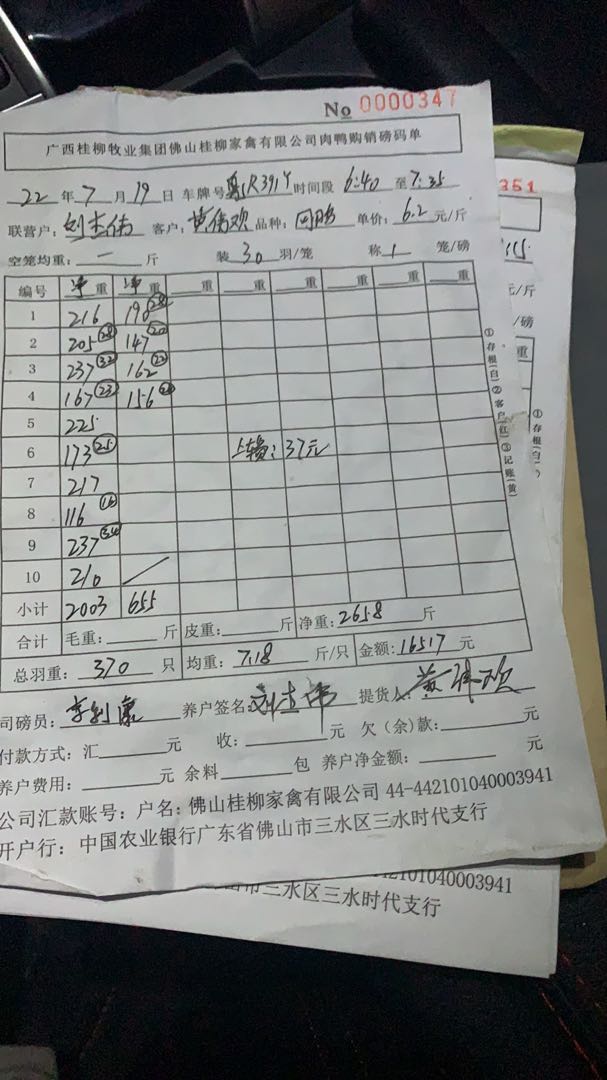 No 0000347
广西桂柳牧业集团佛山桂柳家禽有限公司肉鸭购销磅码单
22 年 7 月 19 日 车牌号 粤 R391Y 时间段 6:40 至 7:35
联营户: 刘杰伟 客户: 黄伟欢 品种: 单价: 6.2 元/斤
空笼均重: 一 斤 装 30 羽/笼 称 1 笼/磅
编号 净重 净重 重 重 重 重 重 重
1 216 198 28
2 205 28 147 20
3 237 32 162 23
4 167 23 156
5 225
6 173 25 上车: 37元
7 217
8 116 16
9 237 34
10 210 /
小计 2003 655
合计 毛重: 斤 皮重: 斤 净重: 2658 斤
总羽重: 370 只 均重: 7.18 斤/只 金额: 16517 元
司磅员: 李剑 养户签名: 刘杰伟 提货人: 黄伟欢
付款方式: 汇 元 收: 元 欠(余)款: 元
养户费用: 元 余料 包 养户净金额: 元
公司汇款账号: 户名: 佛山桂柳家禽有限公司 44-442101040003941
开户行: 中国农业银行广东省佛山市三水区三水时代支行
①存根(白)②客户(红)③记账(黄)
351
元/斤
/磅
重
①存根(白)
442101040003941
山市三水区三水时代支行